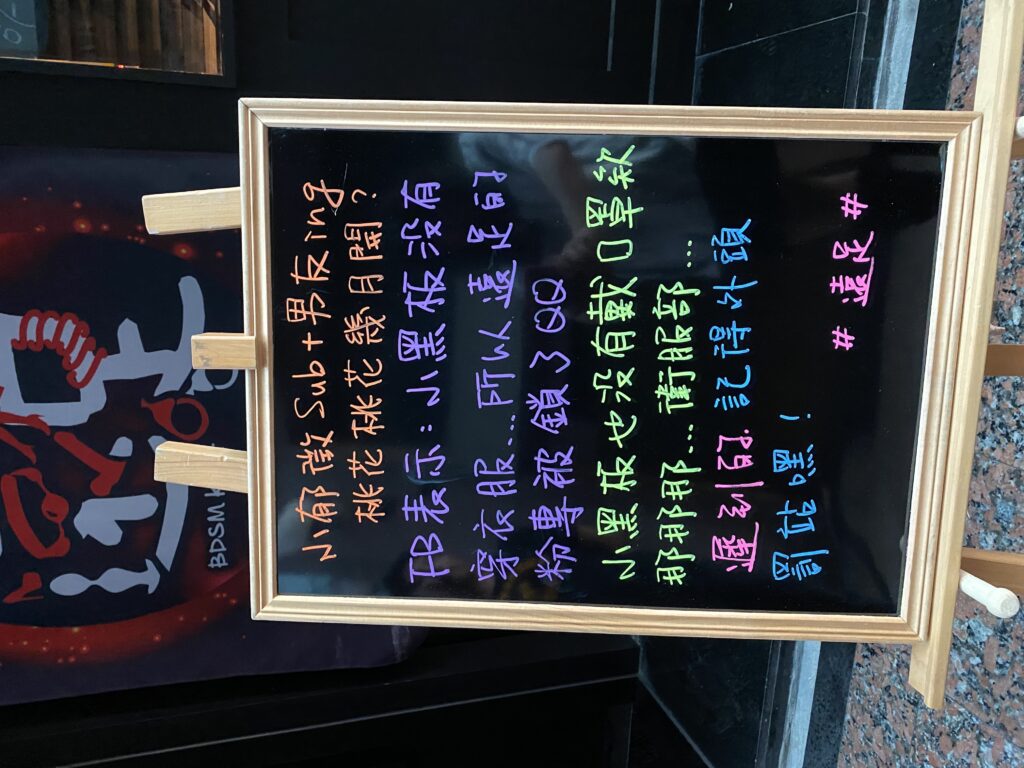 小郁徵Sub+男友ing
桃花桃花幾月開?
FB表示:小黑板沒有
穿衣服...所以遠足的
粉專被鎖了QQ
小黑板也沒有戴口罩欸
那那那那...衛服部...
記得外頭
# 遠足 #
BDSM